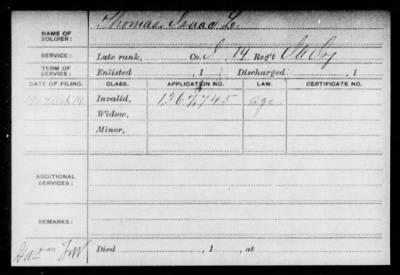 Thomas, Isaac L.
NAME OF SOLDIER:
SERVICE: Late rank, Co. 14 Reg't
TERM OF SERVICE: Enlisted , 1 Discharged , 1
DATE OF FILING. CLASS. APPLICATION NO. LAW. CERTIFICATE NO.
Invalid, age
Widow,
Minor,
ADDITIONAL SERVICES:
REMARKS:
Died , 1 , at